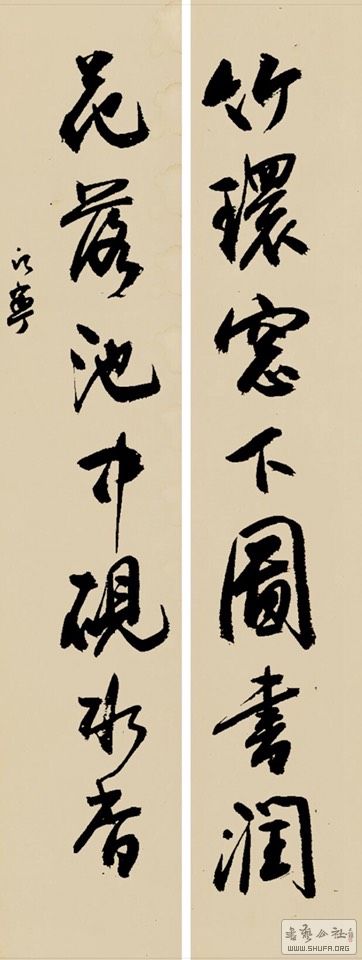 竹環窓下圖書潤
花落池中硯水香
書藝公社
WWW.SHUFA.ORG